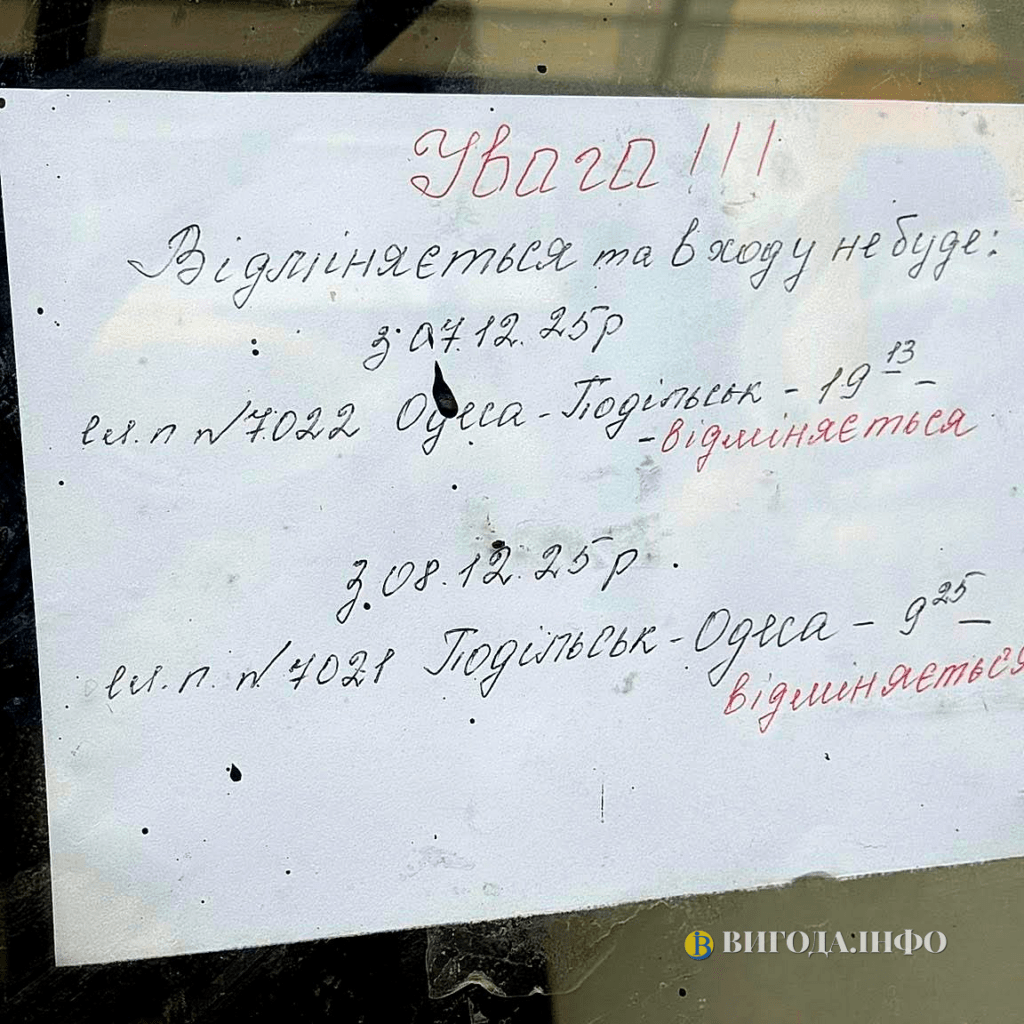 Увага!!!
Відміняється та в ходу не буде:
з 07.12.25р
ел.п №7022 Одеса - Подільськ - 19 13 -
- відміняється
з.08.12.25р.
ел.п. №7021 Подільськ - Одеса - 9 25 -
відміняється
ВИГОДА.ІНФО